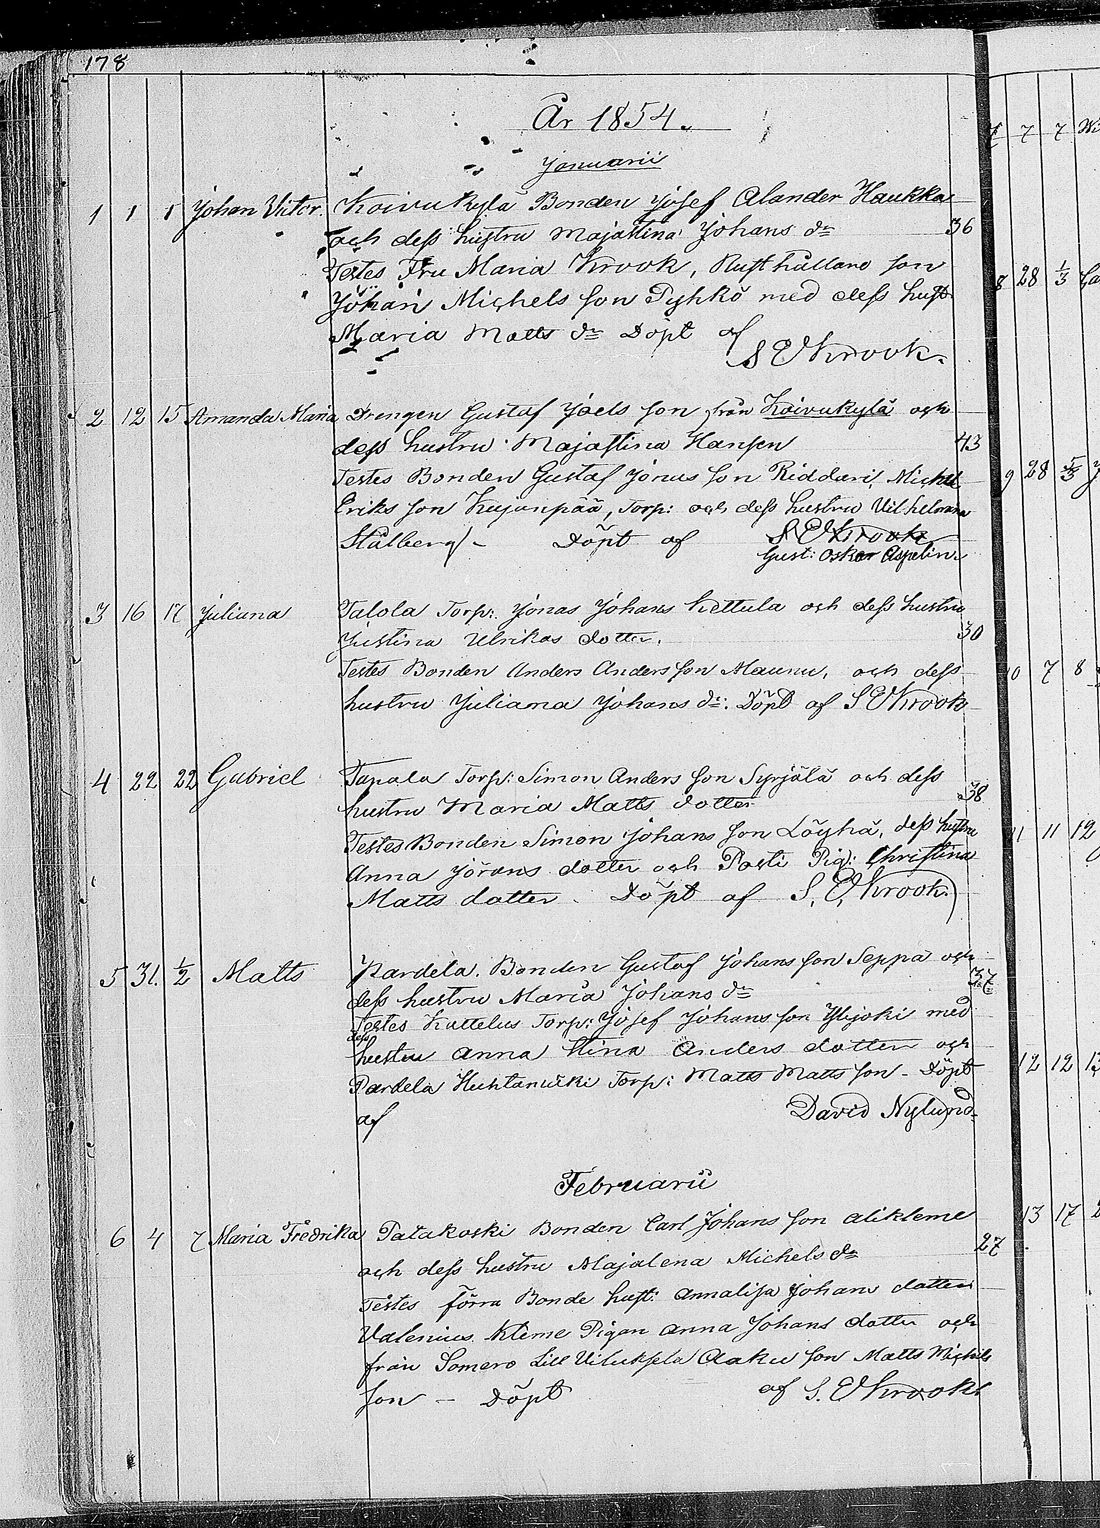 178
År 1854.
Januarii
1 1 1 Johan Victor. Koivukylä Bonden Josef Alander Haukka
och dess hustru Majastina Johans dr 36
Testes Fru Maria Krook, Rusthållare son
Johan Michels son Pyhkö med dess hust
Maria Matts dr Döpt af
S E Krook.
2 12 15 Amanda Maria Drengen Gustaf Joels son från Koivukylä och
dess hustru Majastina Hansen 43
Testes Bonden Gustaf Jonas son Riddari, Michel
Eriks son Kujanpää, Torp: och dess hustru Vilhelmina
Stålberg - Döpt af S E Krook
Gust: Oskar Aspelin.
3 16 17 Juliana Talola Torp: Jonas Johans Kettula och dess hustru
Justina Ulrikas dotter. 30
Testes Bonden Anders Anders son Maunu, och dess
hustru Juliana Johans dr: Döpt af S E Krook
4 22 22 Gabriel Tapala Torp: Simon Anders son Syrjälä och dess
hustru Maria Matts dotter 38
Testes Bonden Simon Johans son Löyhä, dess hustru
Anna Jörans dotter och Posti Pig: Christina
Matts dotter. Döpt af S. E. Krook.
5 31. 1/2 Matts Pardela. Bonden Gustaf Johans son Seppä och
dess hustru Maria Johans dr 37
Testes Kuttelus Torp: Josef Johans son Ylijoki med
dess
hustru Anna Stina Anders dotter och
Pardela Torp: Matts Matts son - Döpt
af David Nylund.
Februarii
6 4 7 Maria Fredrika Patakoski Bonden Carl Johans son Alikleme
och dess hustru Majalena Michels dr 27
Testes förra Bonde hust: Annalisa Johans dotter
Valenius. Kleme Pigan Anna Johans dotter och
från Somero Lill Viluksela Aaku son Matts Michels
son - Döpt af S. E Krook.
7 7 7
8 28 1/3
9 28 5/3
10 7 8
11 11 12
12 12 13
13 17